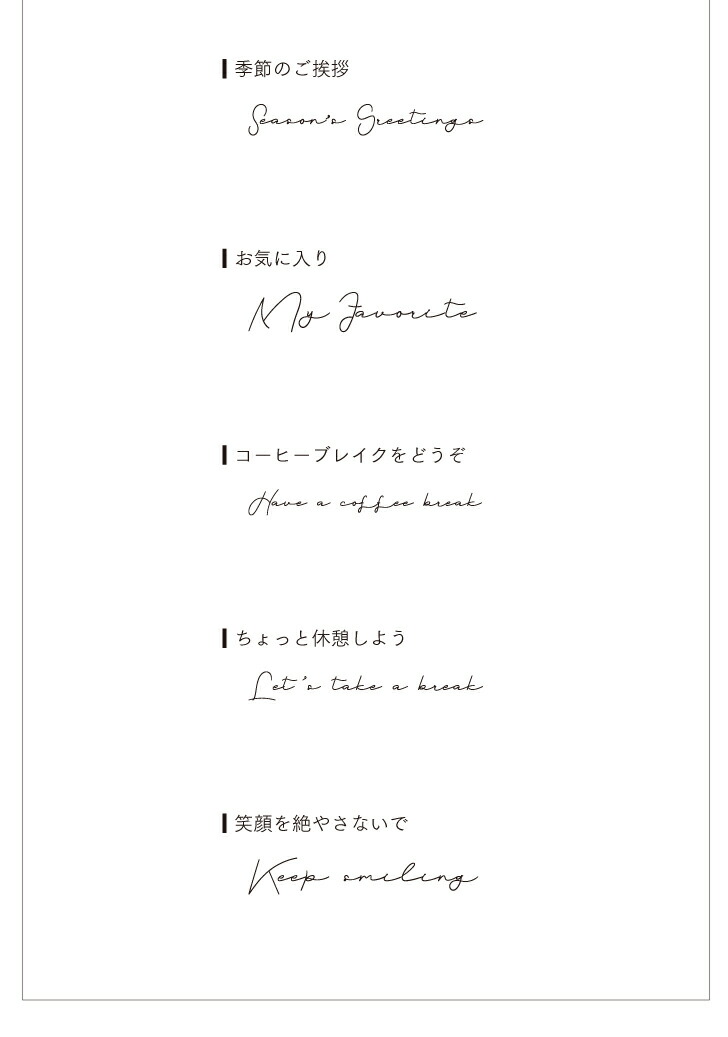 季節のご挨拶
Season's Greetings
お気に入り
My Favorite
コーヒーブレイクをどうぞ
Have a coffee break
ちょっと休憩しよう
Let's take a break
笑顔を絶やさないで
Keep smiling